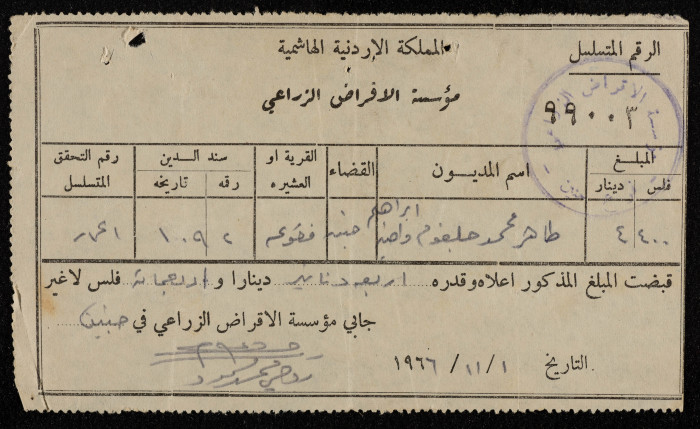 المملكة الاردنية الهاشمية
الرقم المتسلسل
مؤسسة الاقراض الزراعي
٩٩٠٠٣
المبلغ
فلس دينار
اسم المديون
القضاء
القرية او العشيره
سند الدين
رقه تاريخه
رقم التحقق المتسلسل
٤٠٠ ٤ طاهر محمد ابراهيم جنين فقوعه ٢
قبضت المبلغ المذكور اعلاه وقدره اربعة دنانير دينارا و اربعماية فلس لاغير
جابي مؤسسة الاقراض الزراعي في جنين
التاريخ ١ / ١١ / ١٩٦٦